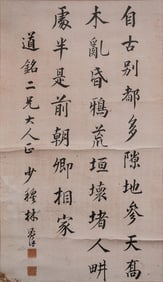 自古別都多隙地參天喬
木亂昏鴉荒垣壞堵人畊
處半是前朝卿相家
道銘二兄大人正 少穆林則徐